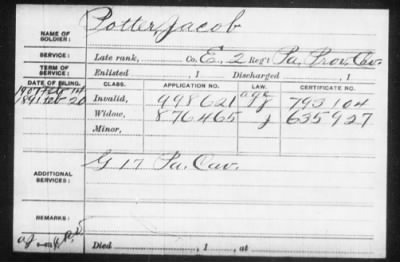 NAME OF SOLDIER: Potter, Jacob
SERVICE: Late rank, Co. E, 2 Reg't Pa. Prov. Cav.
TERM OF SERVICE: Enlisted , 1 Discharged , 1
DATE OF FILING. CLASS. APPLICATION NO. LAW. CERTIFICATE NO.
1907 14 Invalid, 998621 793104
1891 Feb 20 Widow, 876465 635927
Minor,
ADDITIONAL SERVICES: G 17 Pa. Cav.
REMARKS:
Died , 1 , at